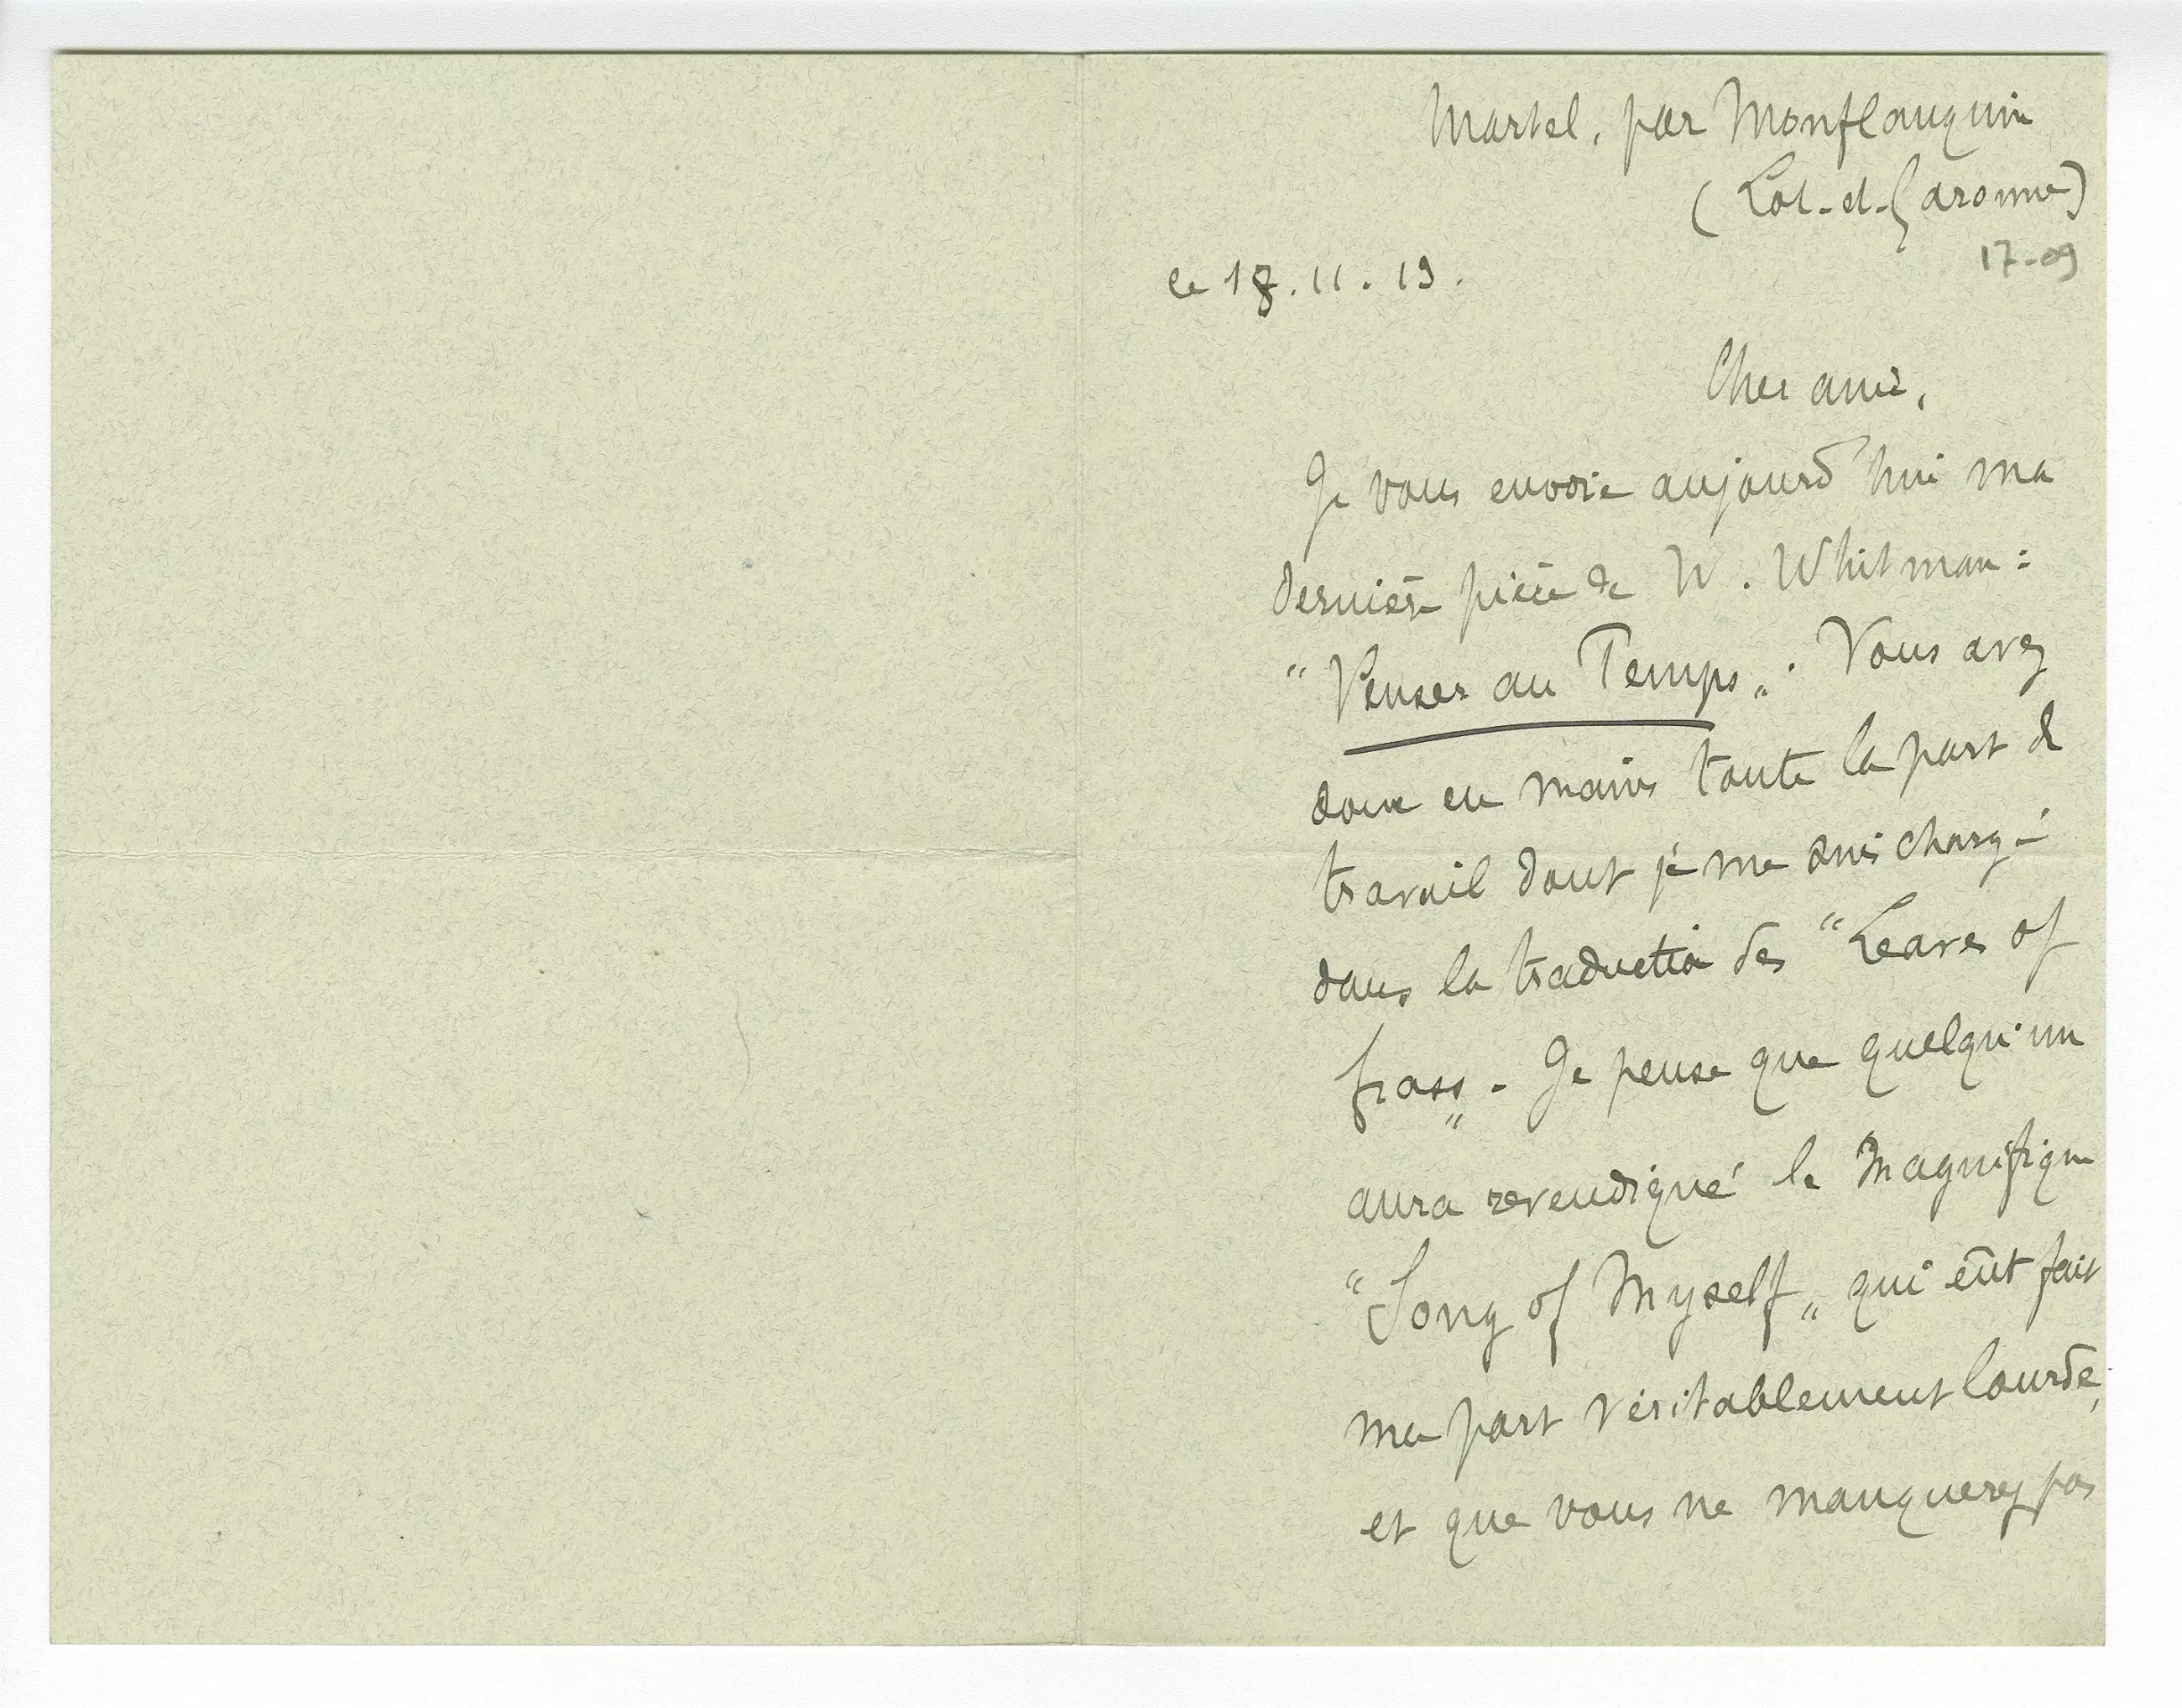 Martel, par Monflanquin
(Lot-et-Garonne)
17-09
le 18.11.13.
Cher ami,
Je vous envoie aujourd'hui ma
dernière pièce de W. Whitman :
"Penser au Temps". Vous avez
donc en mains toute la part de
travail dont je me suis chargé
dans la traduction des "Leaves of
Grass". Je pense que quelqu'un
aura revendiqué le magnifique
"Song of Myself" qui eût fait
ma part véritablement lourde,
et que vous ne manquerez pas